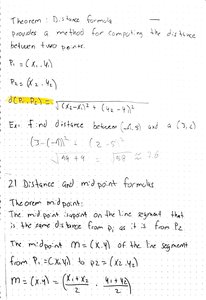 Theorem: Distance formula
provides a method for computing the distance
between two points
P₁ = (x₁, y₁)
P₂ = (x₂, y₂)
d(P₁, P₂) = √(x₂-x₁)² + (y₂-y₁)²
Ex: find distance between (-4, 5) and a (3, 2)
(3-(-4))² + (2-5)²
√49+9 = √58 ≈ 7.6
2.1 Distance and midpoint formulas
Theorem midpoint:
The mid point is a point on the line segment that
is the same distance from P₁ as it is from P₂
The midpoint m = (x, y) of the line segment
from P₁ = (x₁, y₁) to P₂ = (x₂, y₂)
m = (x, y) = (x₁+x₂/2 , y₁+y₂/2)